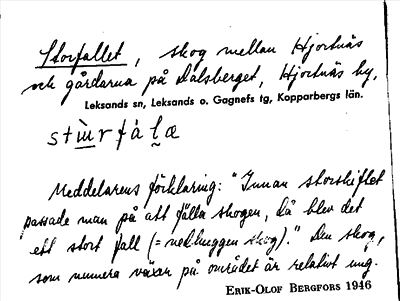 Storfallet, skog mellan Hjortnäs
och gårdarna på Dalsberget, Hjortnäs by,
Leksands sn, Leksands o. Gagnefs tg, Kopparbergs län.
Meddelarens förklaring: "Innan storskiftet
passade man på att fälla skogen, då blev det
ett stort fall (= nedhuggen skog)." Den skog,
som numera växer på området är relativt ung.
ERIK-OLOF BERGFORS 1946